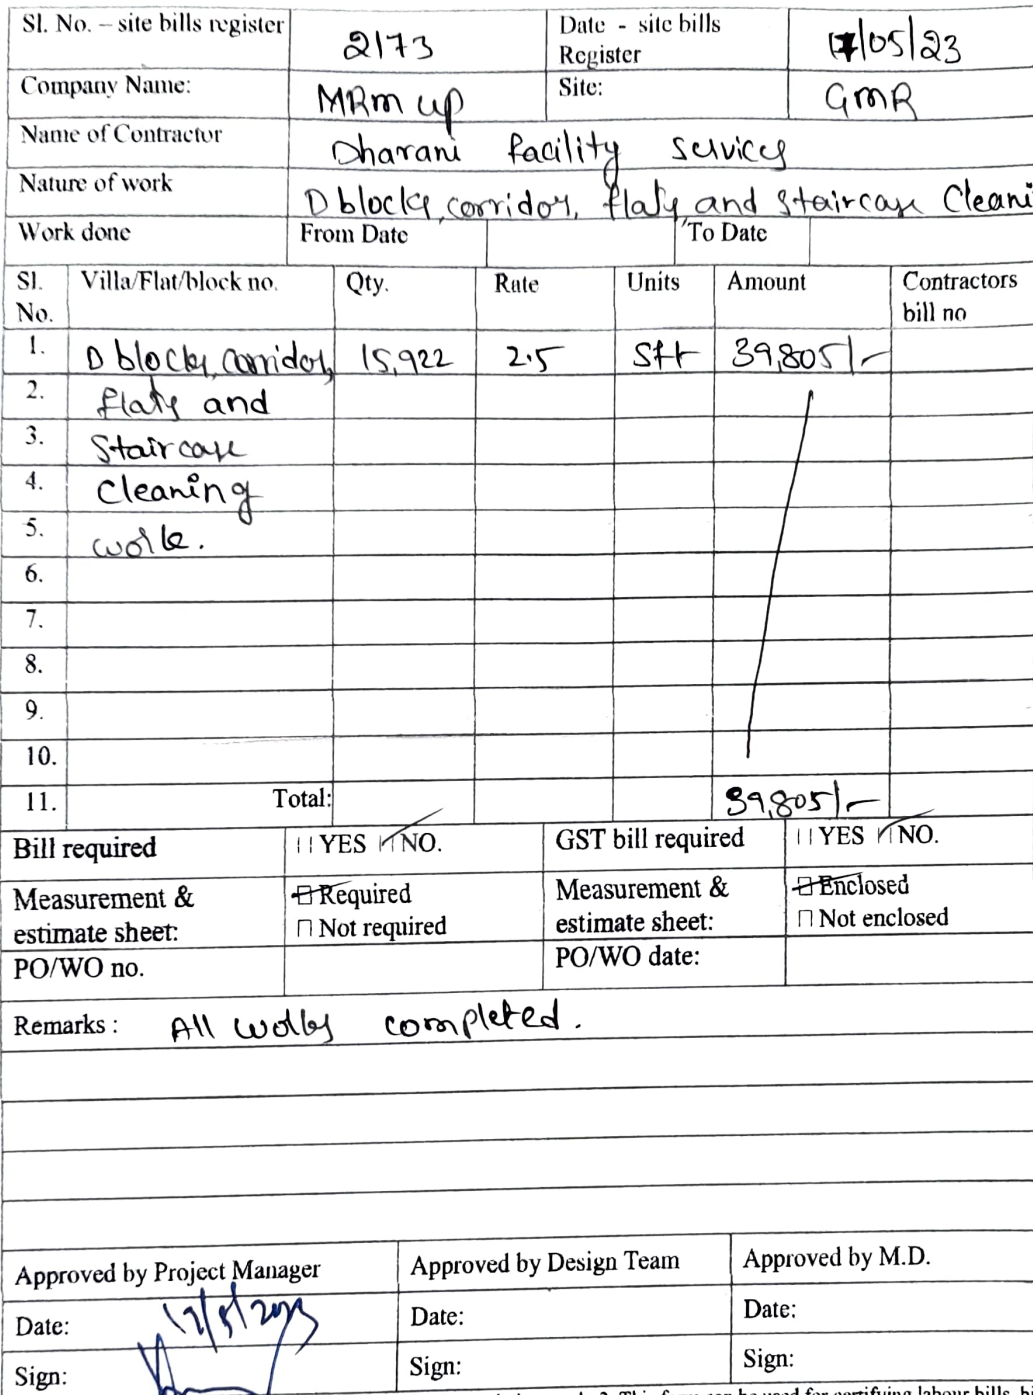 Sl. No. – site bills register 2173 Date - site bills Register 17/05/23
Company Name: MRM up Site: GMR
Name of Contractor Dharani facility services
Nature of work D blocks, corridor, flats, and staircase Cleani
Work done From Date To Date
Sl. No. Villa/Flat/block no. Qty. Rate Units Amount Contractors bill no
1. D blocks, corridor, 15,922 2.5 Sft 39,805/-
2. flats and
3. Staircase
4. Cleaning
5. work.
6.
7.
8.
9.
10.
11. Total: 39,805/-
Bill required YES NO. GST bill required YES NO.
Measurement & estimate sheet: Required Not required Measurement & estimate sheet: Enclosed Not enclosed
PO/WO no. PO/WO date:
Remarks : All works completed.
Approved by Project Manager Approved by Design Team Approved by M.D.
Date: Date: Date:
Sign: Sign: Sign: